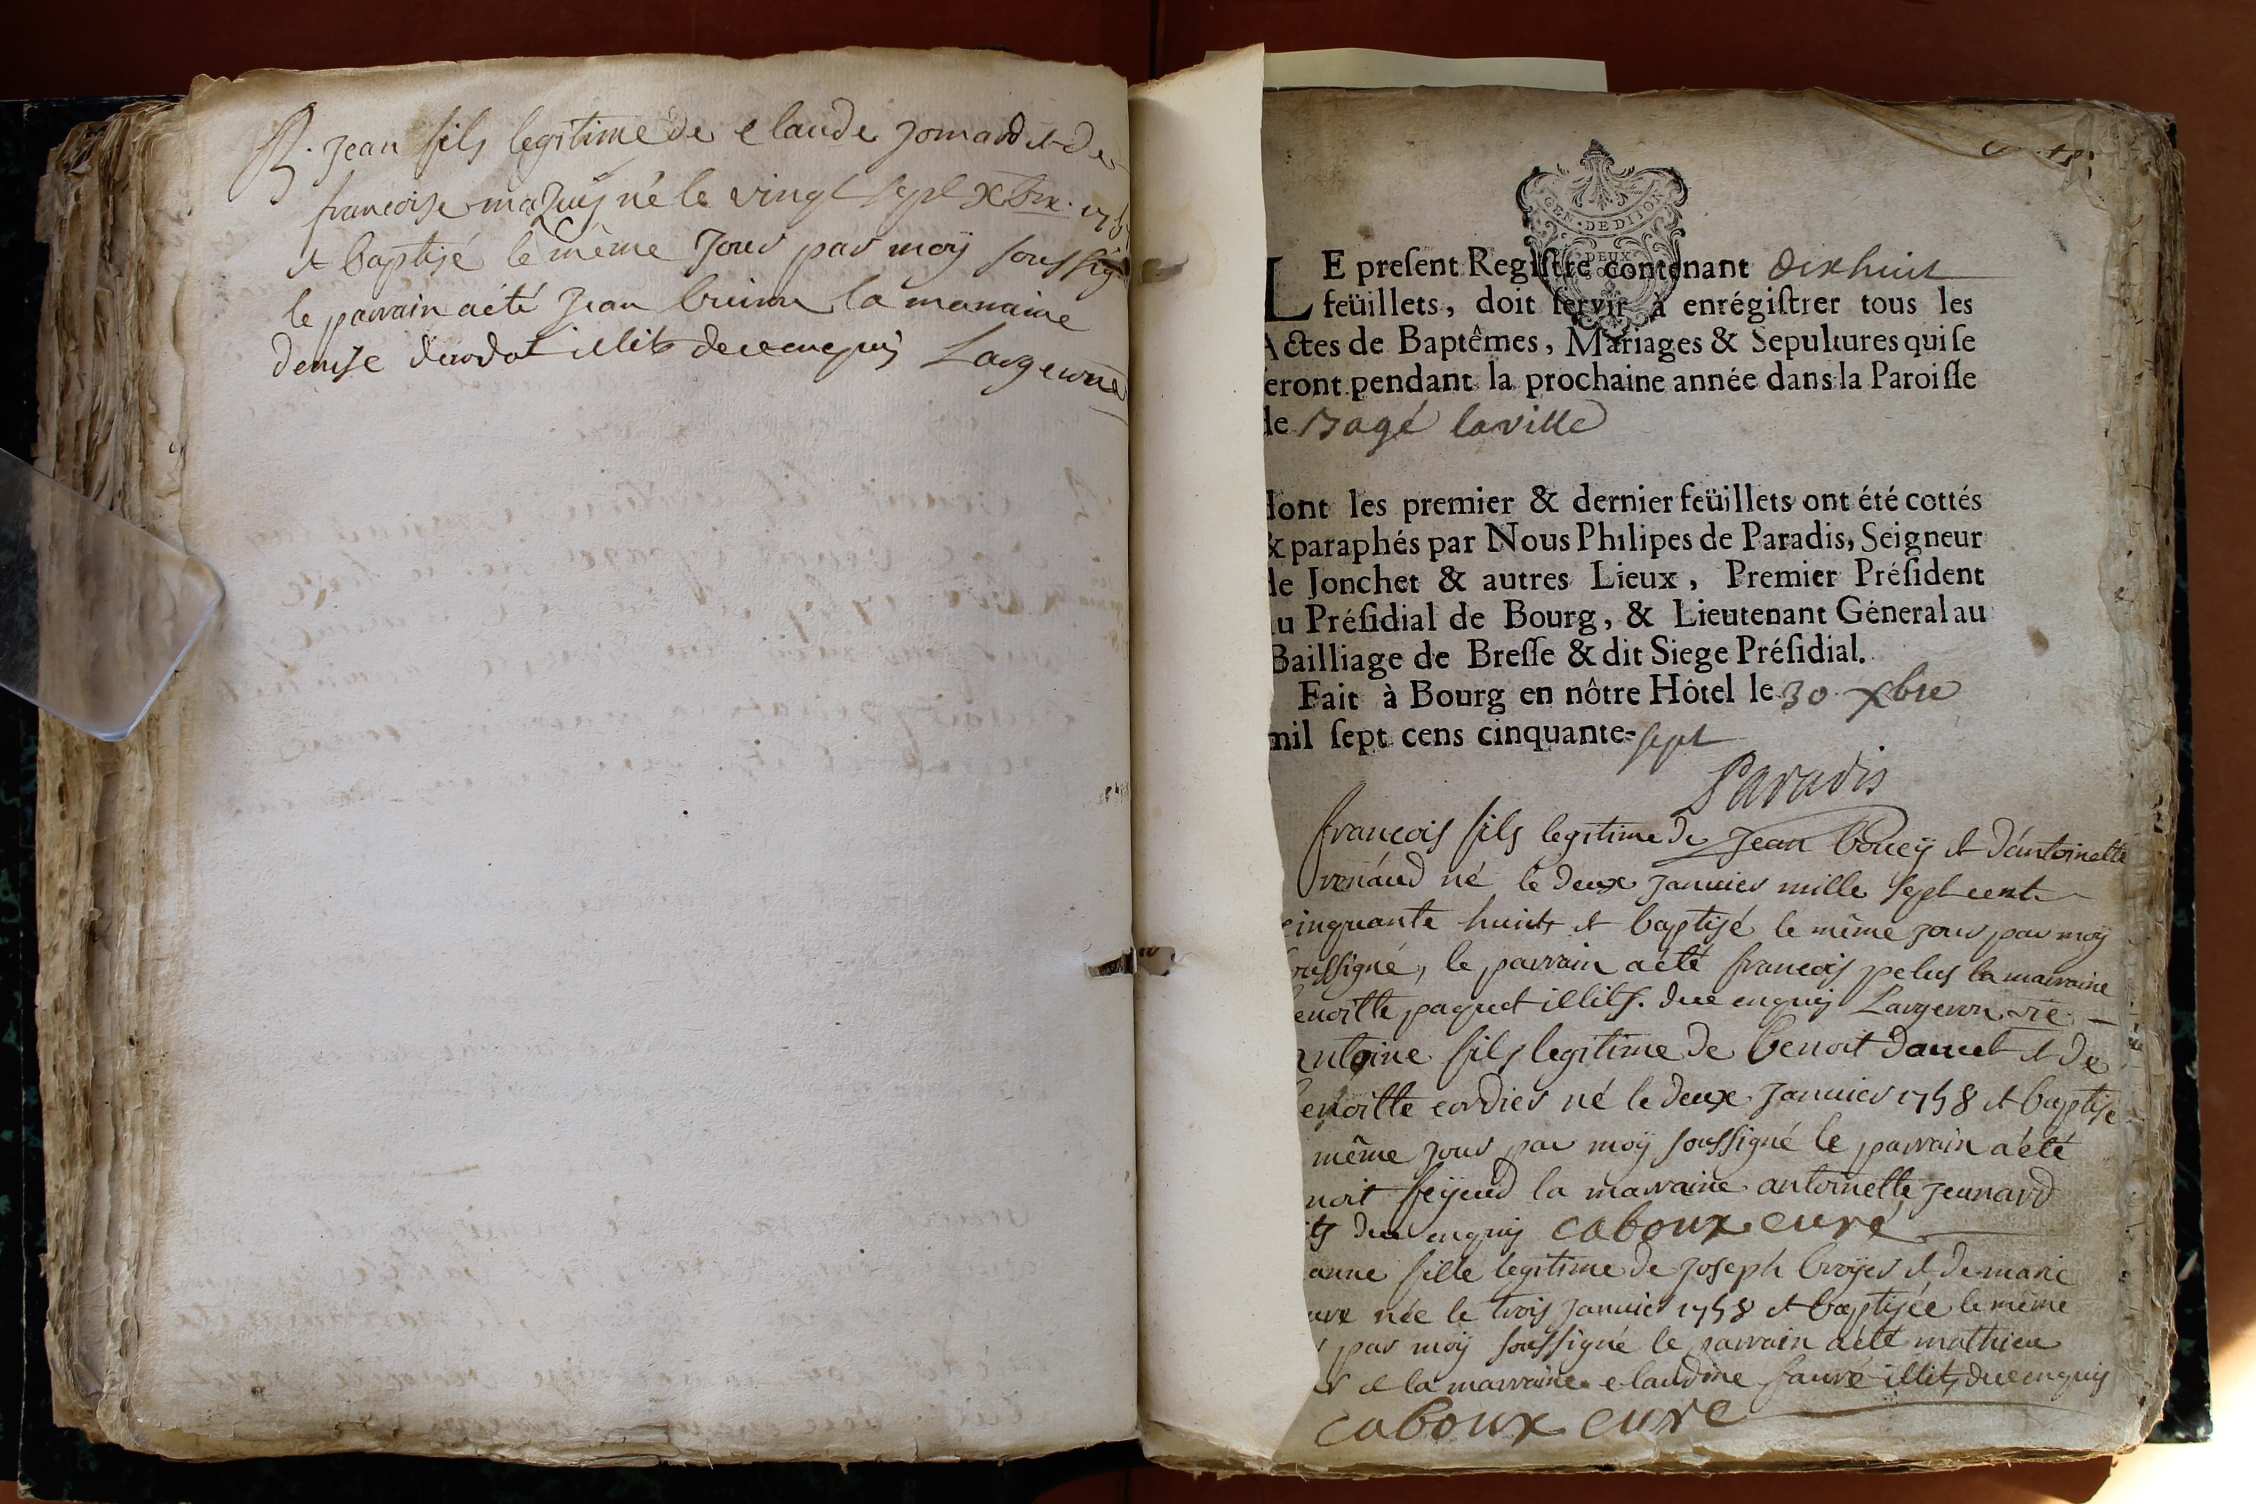 B. jean fils legitime de claude jomard et de
francoise mazuy né le vingt sept Xbre. 175
et baptisé le même jour par moÿ soussig
le parrain a été jean la marraine
denise illits. de ce enquis Largeron
GEN·DE DIJON
DEUX
LE present Registre contenant dixhuit
feüillets, doit servir à enrégistrer tous les
Actes de Baptêmes, Mariages & Sepultures qui se
eront pendant la prochaine année dans la Paroisse
de Bagé laville
dont les premier & dernier feüillets ont été cottés
& paraphés par Nous Philipes de Paradis, Seigneur
de Jonchet & autres Lieux, Premier Président
au Présidial de Bourg, & Lieutenant Géneral au
Bailliage de Bresse & dit Siege Présidial.
Fait à Bourg en nôtre Hôtel le 30 Xbre
mil sept cens cinquante-sept
Paradis
francois fils legitime de jean boucÿ et d'antoinette
renaud né le deux janvier mille sept cent
cinquante huit et baptisé le même jour par moÿ
soussigné, le parrain a été francois pelus la marraine
enoitte paquet illits. de ce enquis Largeron vic
antoine fils legitime de benoit danet et de
benoitte cordier né le deux janvier 1758 et baptise
même jour par moÿ soussigné le parrain a été
noit feÿeud la marraine antoinette jeunard
ts de ce enquis caboux curé
anne fille legitime de joseph broyer et de marie
uvre née le trois janvier 1758 et baptisée le même
par moÿ soussigné le parrain a été mathieu
er et la marraine claudine fauvre illits de ce enquis
caboux curé